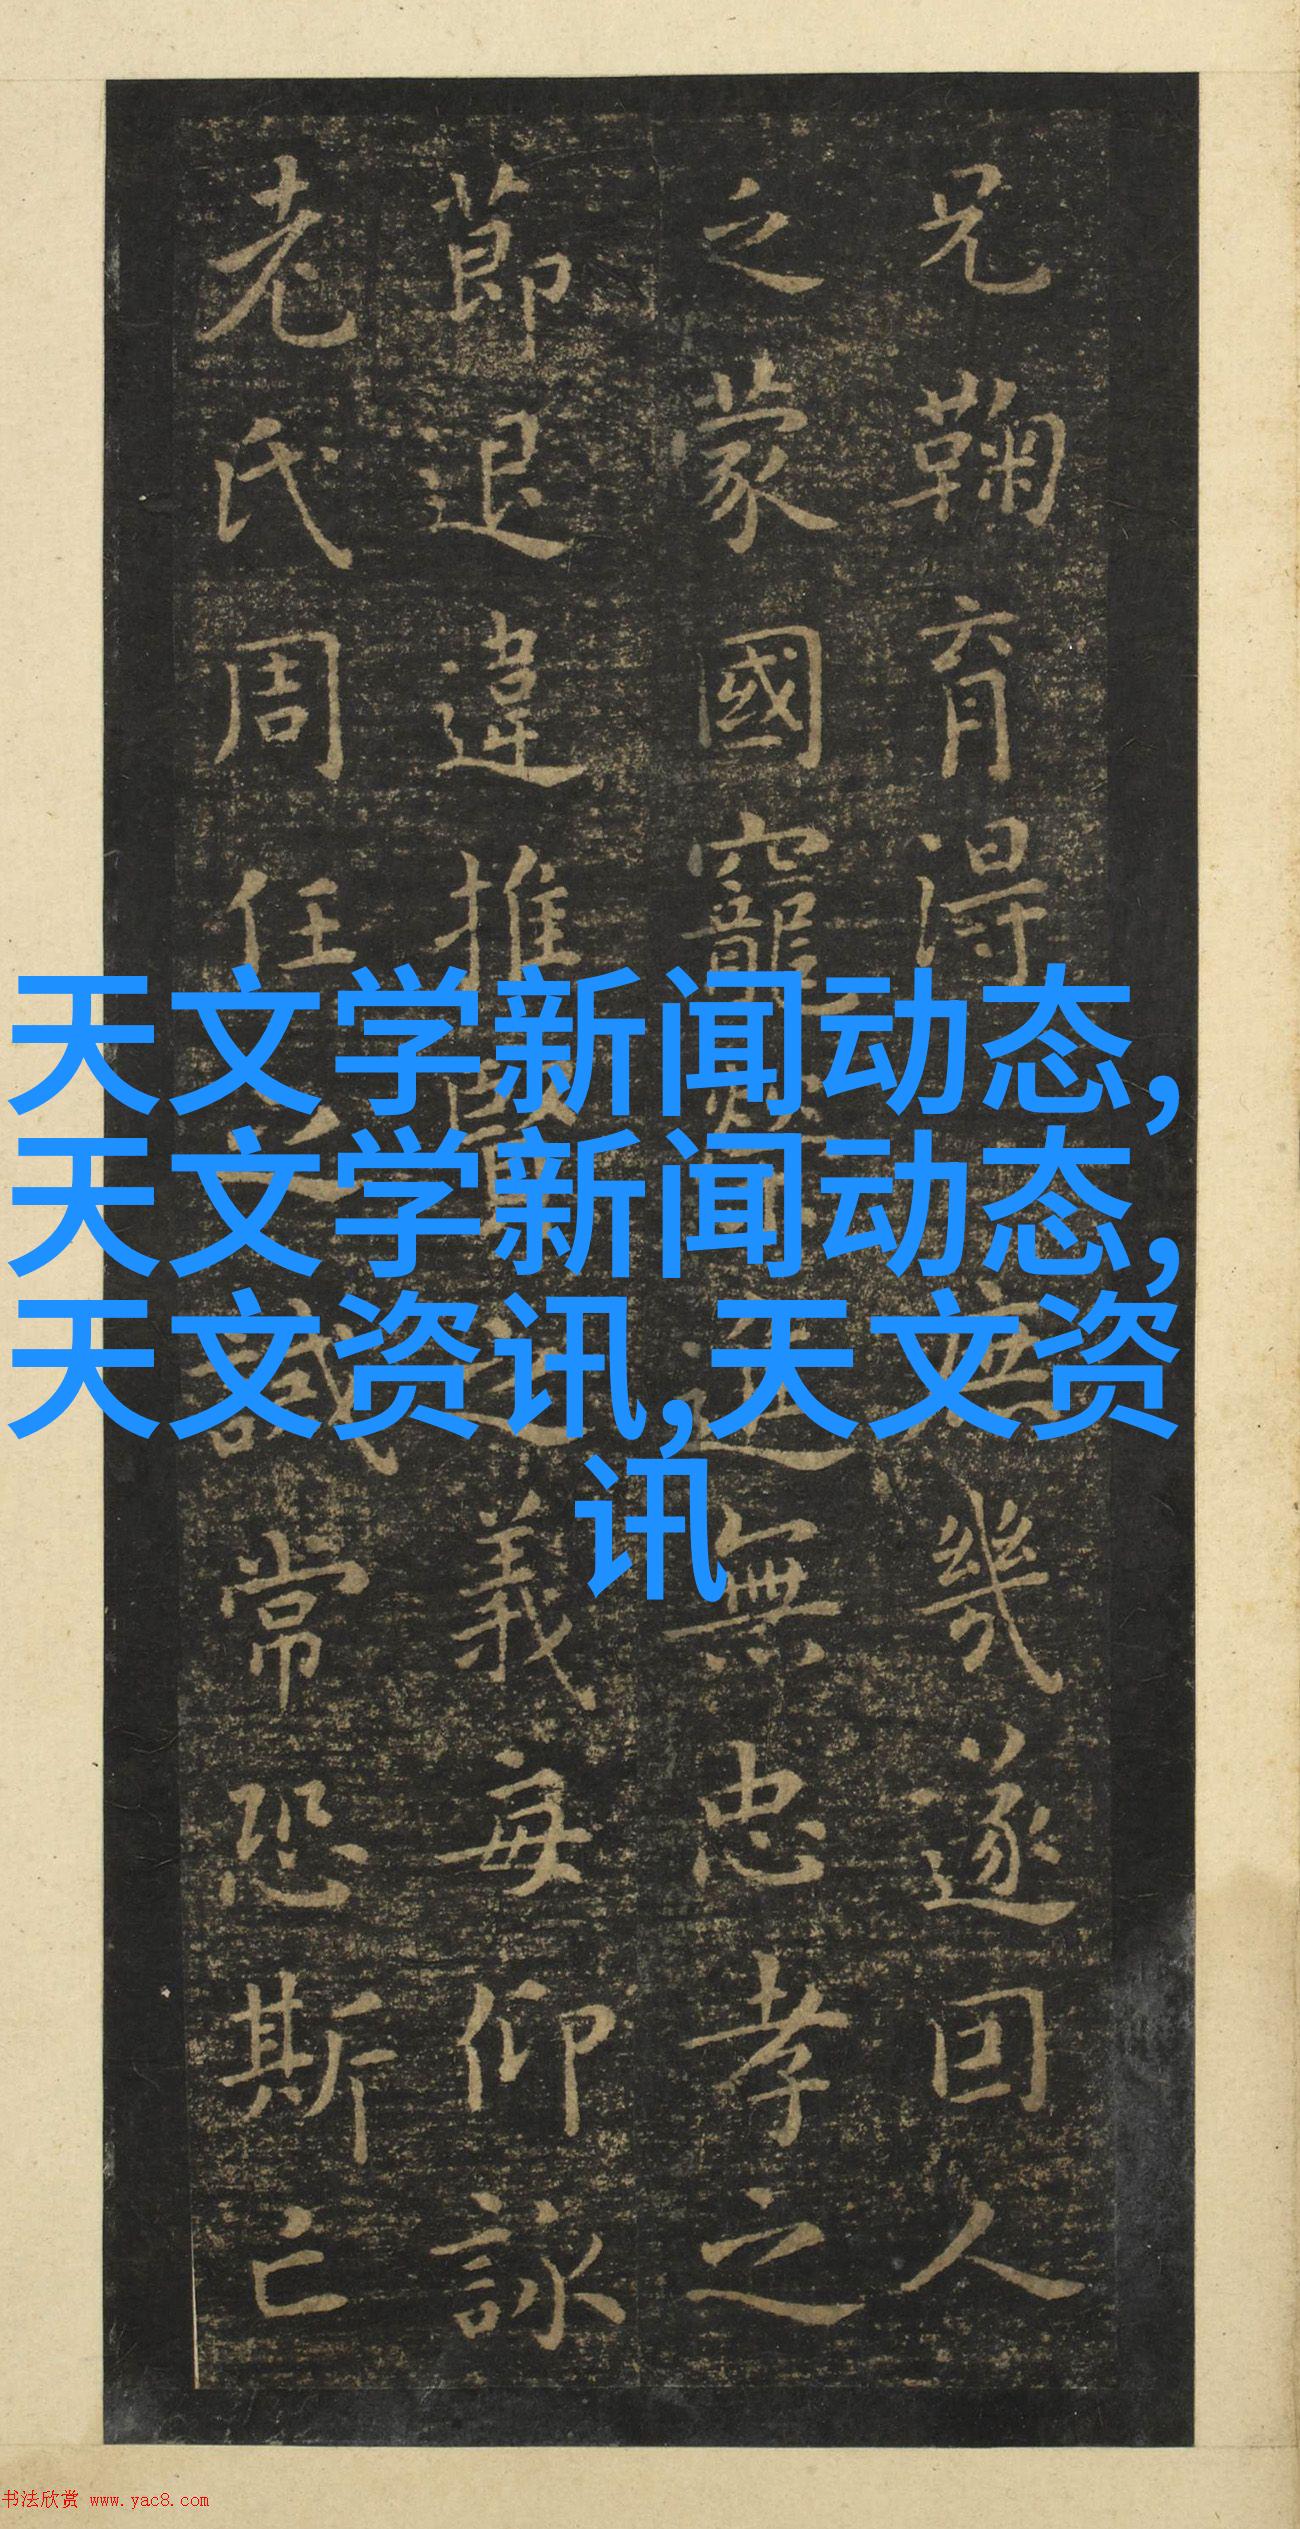 兄鞠育得庶幾遂囙人
之蒙國寵榮進無忠孝之
莭退違推賢之義每仰詠
老氏周任之誡常恐斯亡
天文学新闻动态,
天文学新闻动态,
天文资讯,天文资
讯
书法欣赏 www.yac8.com